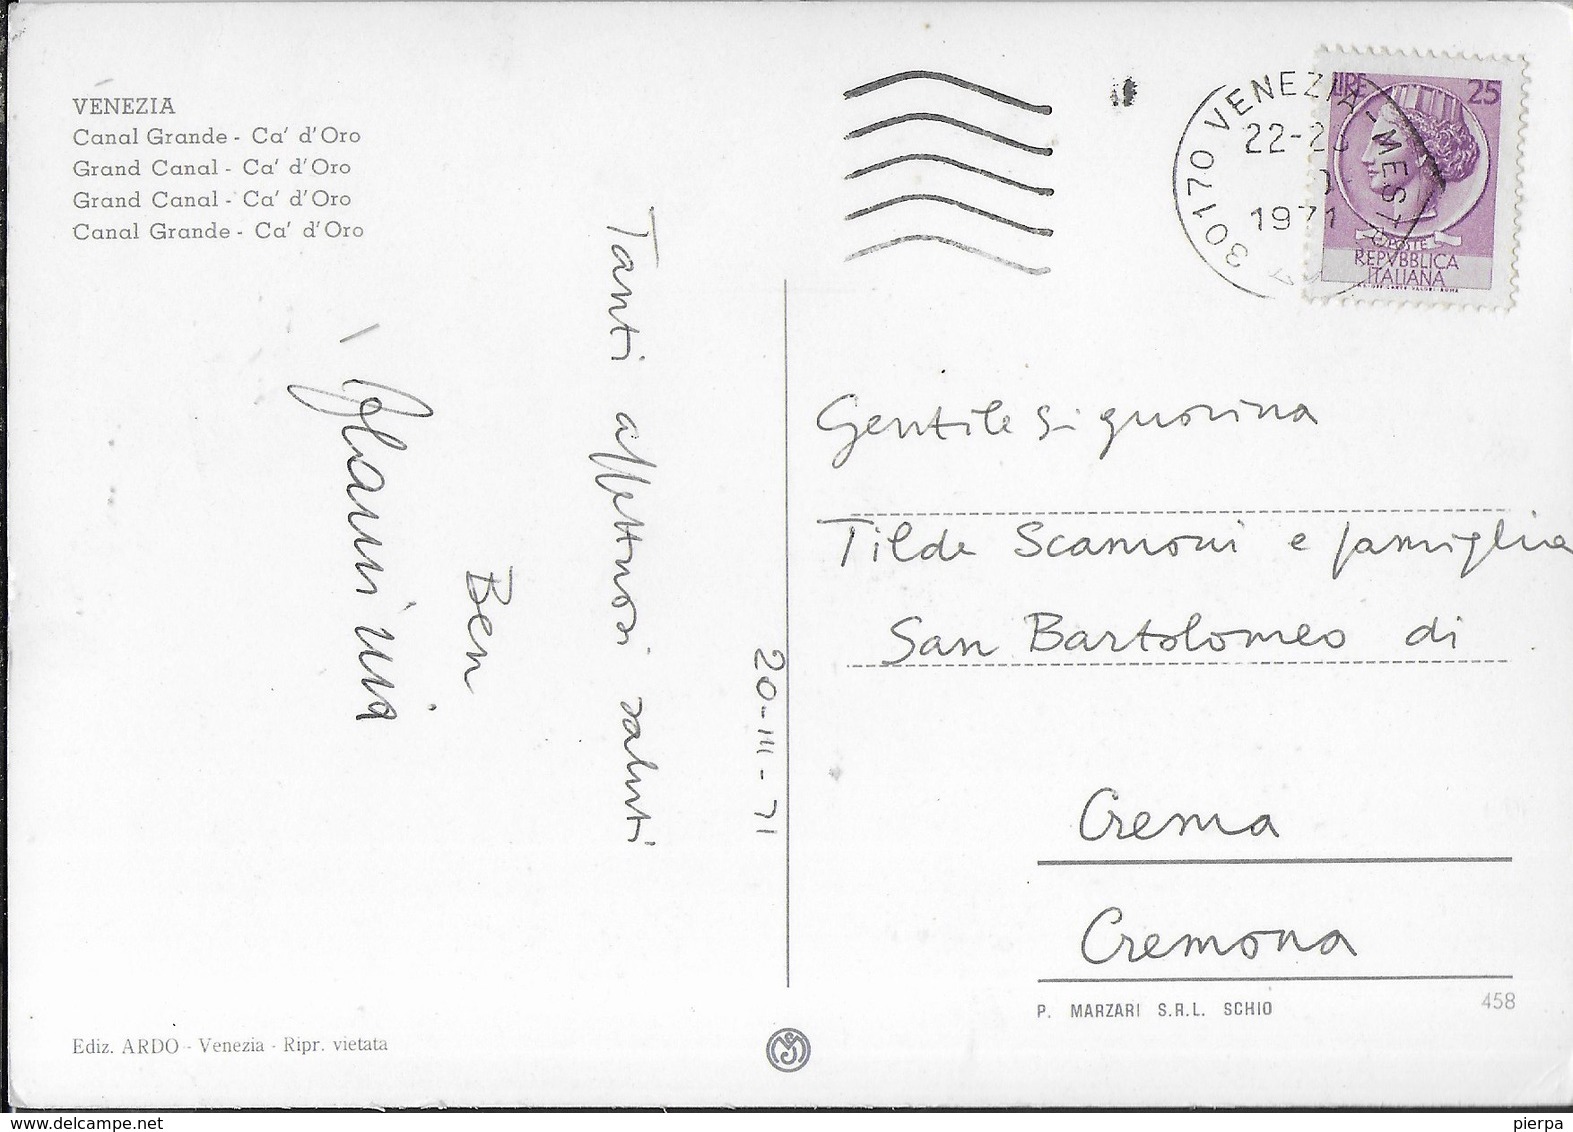 VENEZIA
Canal Grande - Ca' d'Oro
Grand Canal - Ca' d'Oro
Grand Canal - Ca' d'Oro
Canal Grande - Ca' d'Oro
20-III-71
Tanti affettuosi saluti
Ben
Giannina
30170 VENEZIA-MESTRE
22-23
1971
LIRE 25
POSTE
REPVBBLICA
ITALIANA
Gentile Signorina
Tilde Scamoni e famiglia
San Bartolomeo di
Crema
Cremona
P. MARZARI S.R.L. SCHIO
458
Ediz. ARDO - Venezia - Ripr. vietata
delcampe.net
pierpa